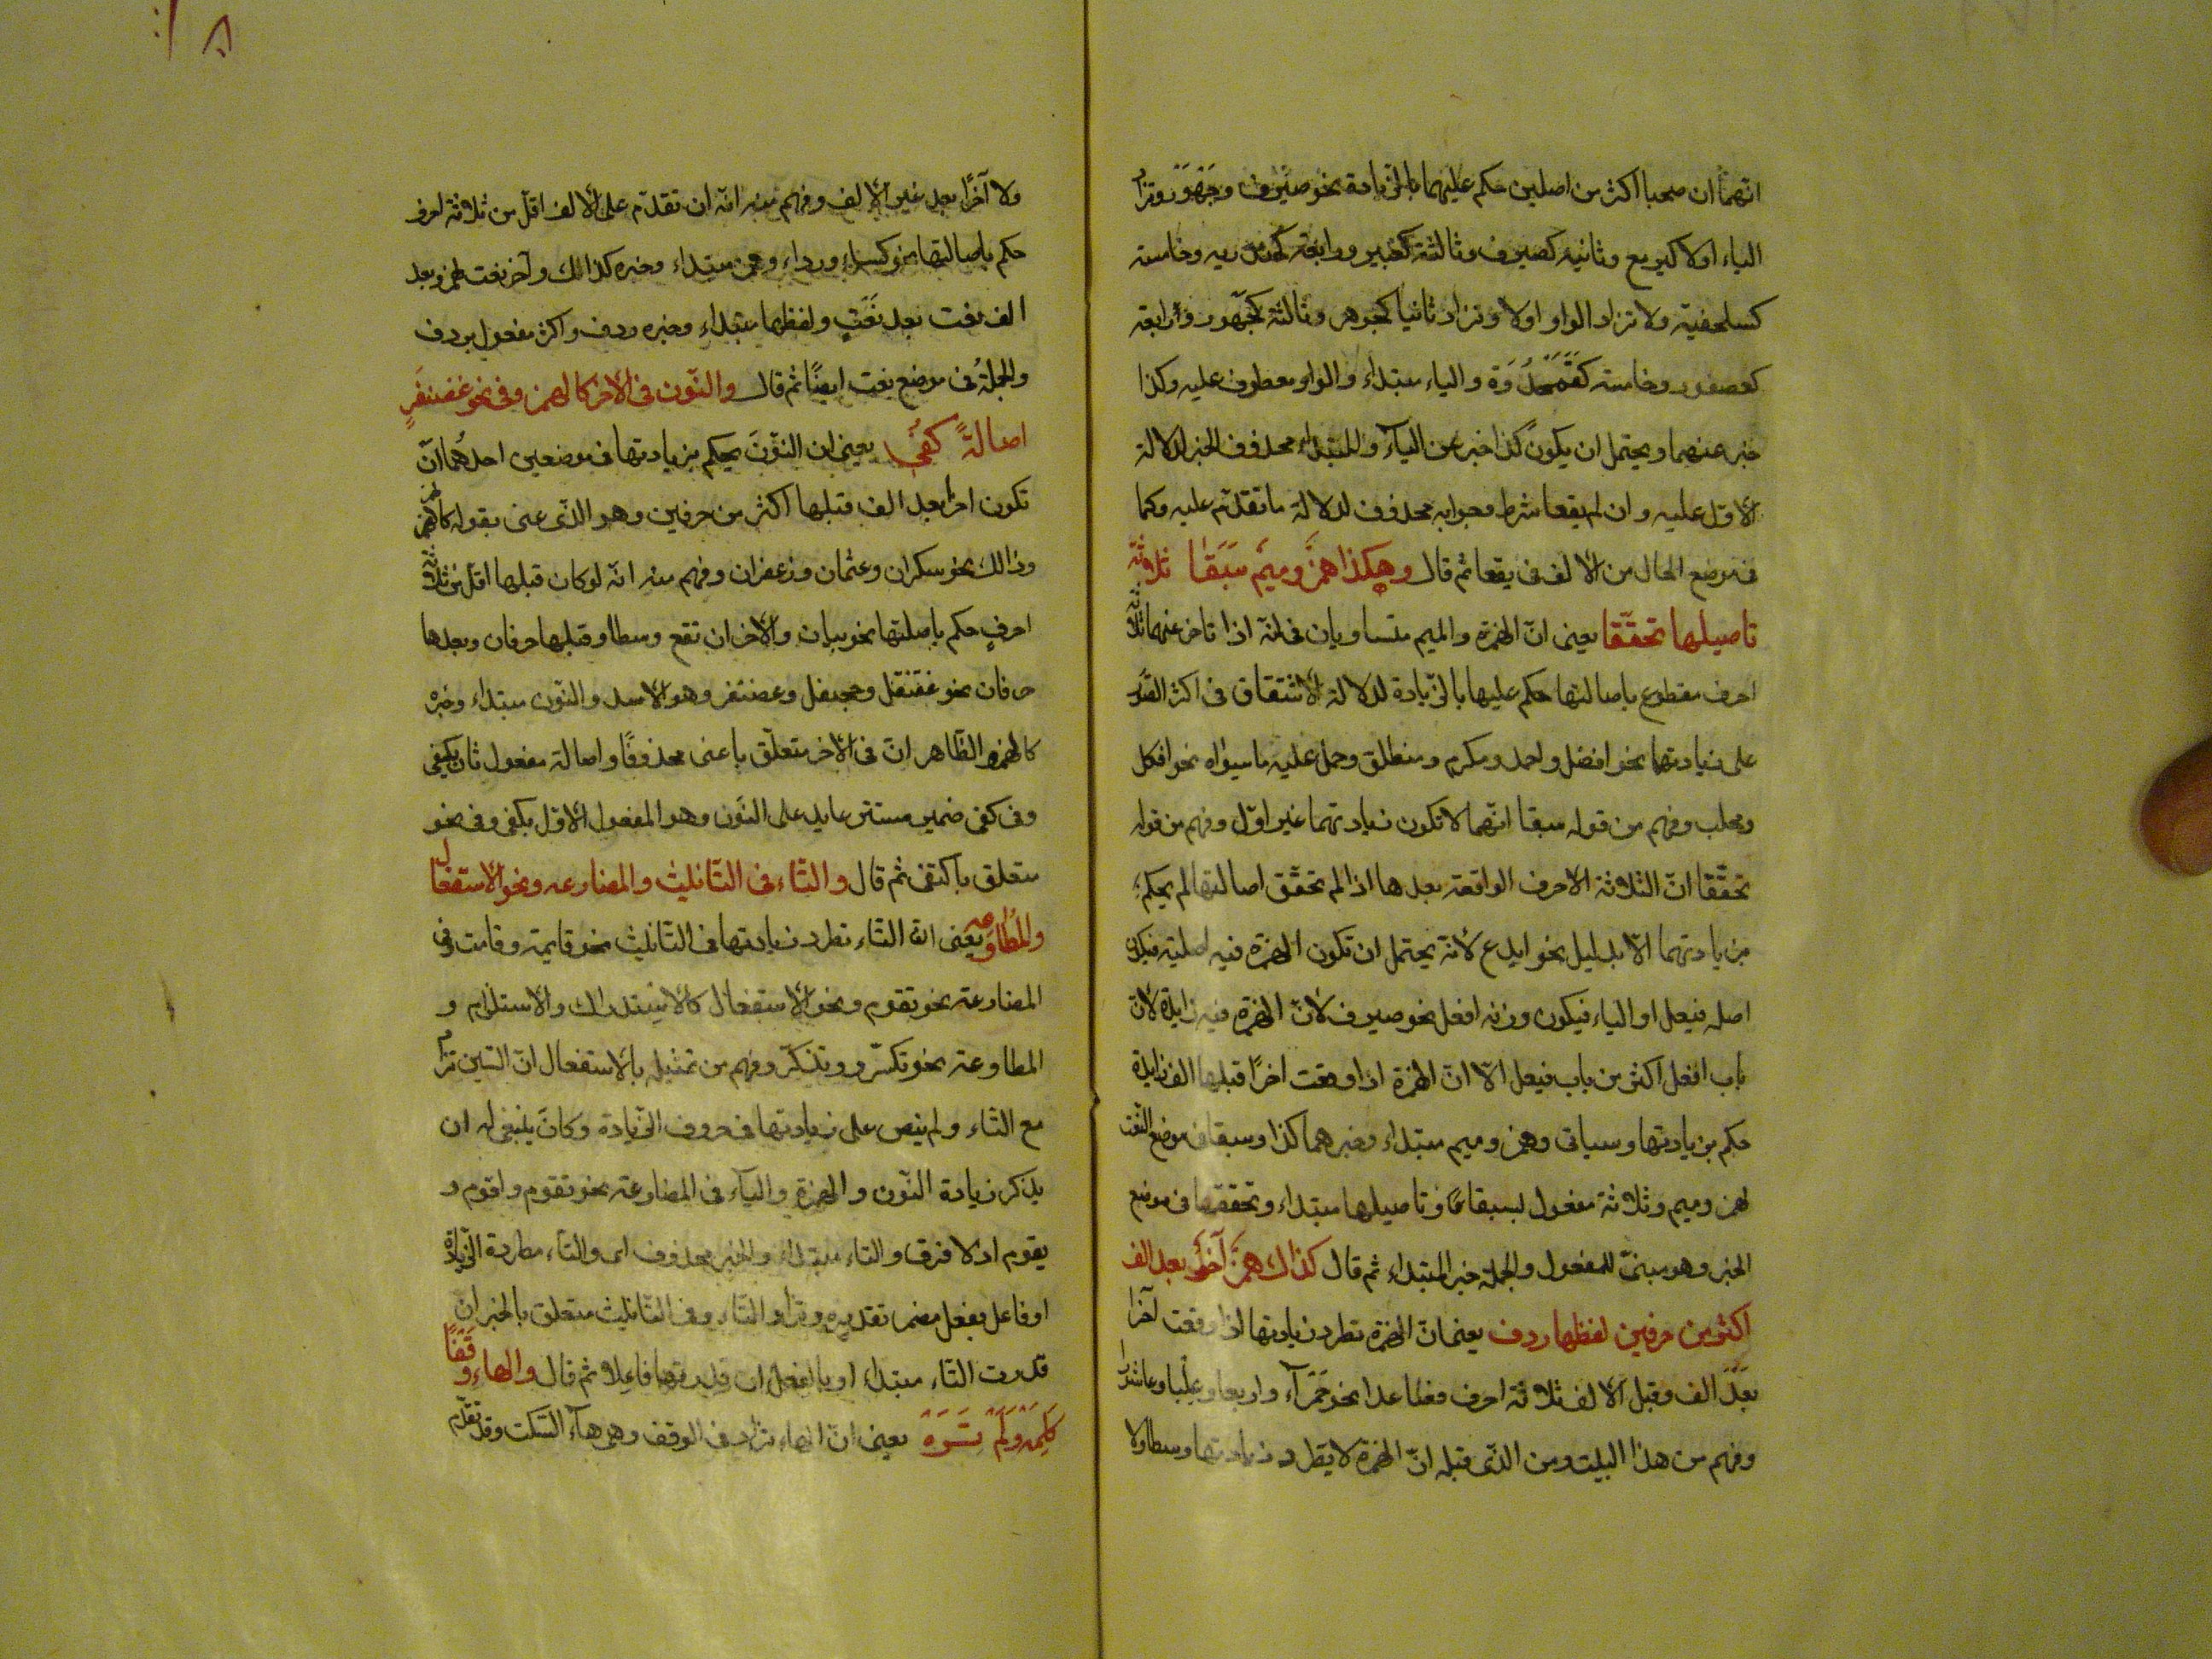 انهما ان صحبا اكثر من اصلين حكم عليهما بالزيادة نحو صيرف وجهور وتزاد
الياء اولا كيرمع وثانيه كصيرف وثالثة كعثير ورابعة وخامسه
كسلحفية ولا تزاد الواو اولا وتزاد ثانيا كجوهر وثالثة كجهور ورابعة
كعصفور وخامسه كقمحدوة والياء مبتداء والواو معطوف عليه وكذا
خبر عنهما ويحتمل ان يكون كذا خبر عن الياء والمبتداء محذوف الخبر لدلالة
الاول عليه وان لم يقعا شرط وجوابه محذوف لدلالة ما تقدم عليه وكما
فى موضع الحال من الالف فى يقعا ثم قال وهكذا همز وميم سبقا ثلاثة
تاصيلها تحققا يعنى ان الهمزة والميم متساويان فى انه اذا تاخر عنهما ثلاثة
احرف مقطوع باصالتها حكم عليها بالزيادة لدلالة الاشتقاق فى اكثر الصور
على زيادتها نحو افضل واحمد ومكرم ومنطلق وحمل عليه ما سواه نحو افكل
ومحلب وفهم من قوله سبقا انهما لا تكون زيادتهما غير اول وفهم من قوله
تحققا ان الثلاثة الاحرف الواقعة بعدها اذا لم تحقق اصالتها لم يحكم
بزيادتهما الا بدليل نحو ايدع لانه يحتمل ان تكون الهمزة فيه اصلية فيكون
اصله فيعل او الياء فيكون وزنه افعل نحو صيرف لان الهمزة فيه زايدة لان
باب افعل اكثر من باب فيعل الا ان الهمزة اذا وقعت اخرا قبلها الف زايدة
حكم بزيادتها وسياتى وهمز وميم مبتداء وخبرهما كذا وسبقا فى موضع النعت
لهمز وميم وثلاثة مفعول لسبقا وتاصيلها مبتداء وتحققها فى موضع
الخبر وهو مبنى للمفعول والجملة خبر المبتداء ثم قال كذاك همز آخر بعد الف
اكثر من حرفين لفظها ردف يعنى ان الهمزة تطرد زيادتها اذا وقعت آخرا
بعد الف وقبل الالف ثلاثة احرف فصاعدا نحو حمراء واربعا وعلبا وعاشورا
وفهم من هذا البيت ومن الذى قبله ان الهمزة لا يطرد زيادتها وسطا ولا
ولا آخرا بعد غير الالف وفهم منه انه ان تقدم على الالف اقل من ثلاثة احرف
حكم باصالتها نحو كساء ورداء وهمز مبتداء وخبره كذالك وآخر نعت لهمز وبعد
الف نعت بعد نعت ولفظها مبتداء وخبره ردف واكثر مفعول بردف
والجملة فى موضع نعت ايضا ثم قال والنون فى الاخر كالهمز وفى نحو غضنفر
اصالة كفى يعنى ان النون يحكم بزيادتها فى موضعين احدهما ان
تكون اخرا بعد الف قبلها اكثر من حرفين وهو الذى عنى بقوله كالهمز
وذالك نحو سكران وعثمان وزعفران وفهم منه انه لو كان قبلها اقل من ثلاثة
احرف حكم باصلتها نحو بيان والاخر ان تقع وسطا وقبلها حرفان وبعدها
حرفان نحو عقنقل وجحنفل وغضنفر وهو الاسد والنون مبتداء وخبره
كالهمز والظاهر ان فى الاخر متعلق باعنى محذوفا واصالة مفعول ثان بكفى
وفى كفى ضمير مستتر عايد على النون وهو المفعول الاول بكفى وفى نحو
متعلق باكتفى ثم قال والتاء فى التانيث والمضارعه ونحو الاستفعال
والمطاوعه يعنى ان التاء تطرد زيادتها فى التانيث نحو قايمة وقامت وفى
المضارعة نحو تقوم ونحو الاستفعال كالاستدراك والاستلزام و
المطاوعة نحو تكسر وتذكر وفهم من تمثيله بالاستفعال ان السين تزاد
مع التاء ولم ينص على زيادتها فى حروف الزيادة وكان ينبغى له ان
يذكر زيادة النون والهمزة والياء فى المضارعة نحو نقوم واقوم و
يقوم اذ لا فرق والتاء مبتداء والخبر محذوف اى والتاء مطردة الزيادة
او فاعل بفعل مضمر تقديره وتزاد التاء وفى التانيث متعلق بالخبر ان
قدرت التاء مبتداء او بالفعل ان قدرتها فاعلا ثم قال والهاء وقفا
كلمه ولم تره يعنى ان الهاء تزاد فى الوقف وهى هاء السكت وقد تقدم